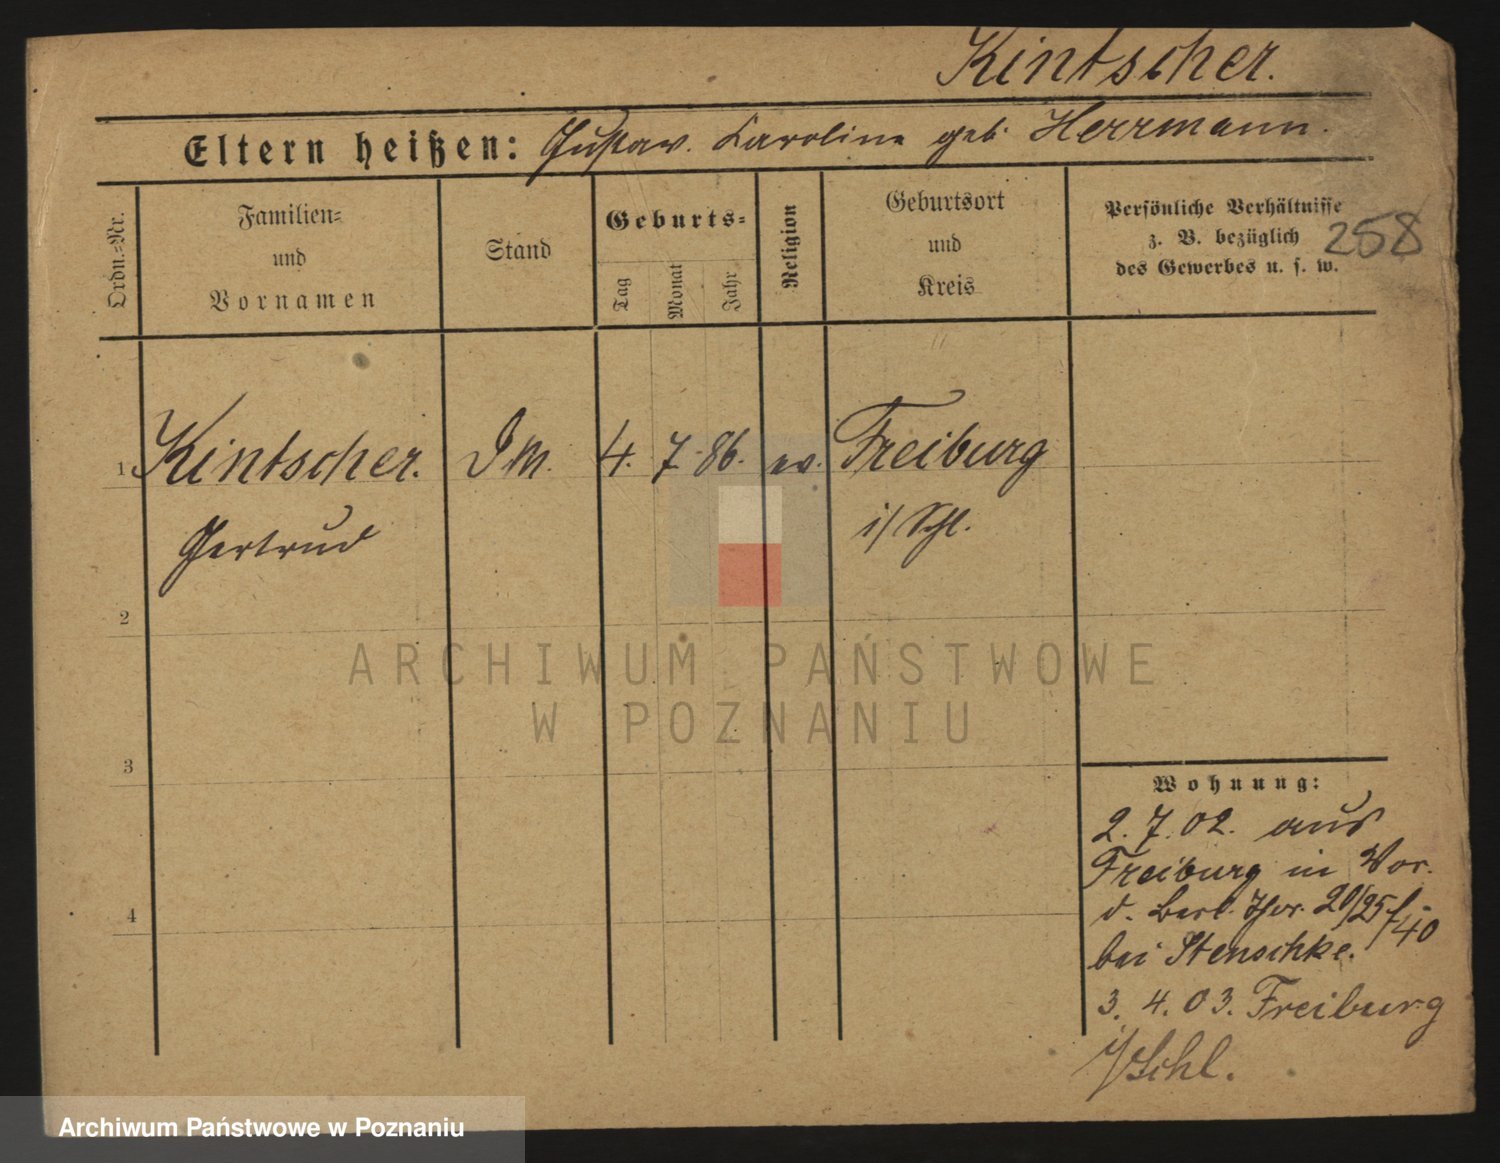 Kintscher.
Eltern heißen: Gustav. Karoline geb. Herrmann.
Ordn.-Nr.
Familien-
und
Vornamen
Stand
Geburts-
Tag
Monat
Jahr
Religion
Geburtsort
und
Kreis
Persönliche Verhältnisse
z. B. bezüglich
des Gewerbes u. s. w.
258
1 Kintscher. 4. 7. 86. ev. Freiburg
Gertrud i/Schl.
2
3
4
ARCHIWUM PAŃSTWOWE
W POZNANIU
Wohnung:
2. 7. 02. aus
Freiburg in Vor.
d. Berl. Thor.
bei Stenschke.
3. 4. 03. Freiburg
i/Schl.
Archiwum Państwowe w Poznaniu